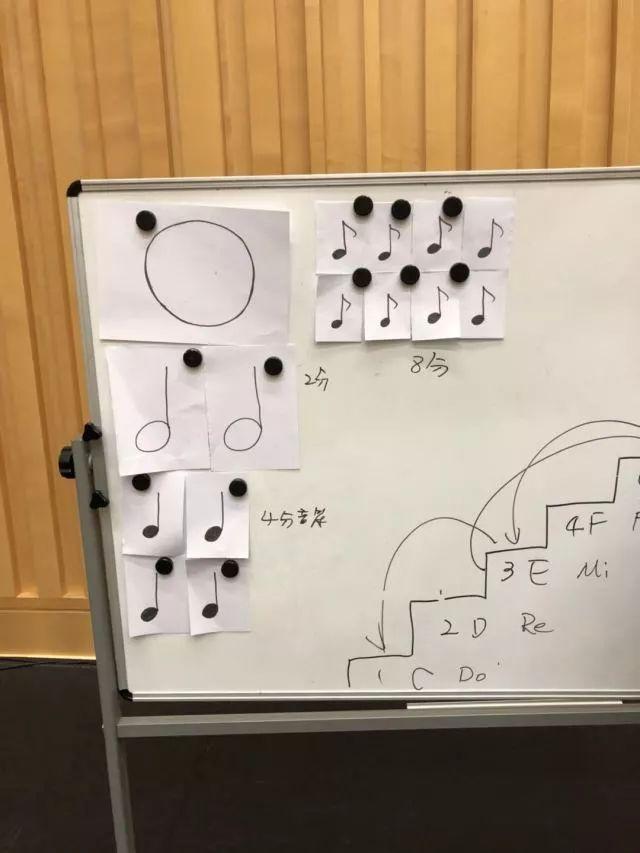 2分
8分
4分音符
4 F
3 E Mi
2 D Re
1 C Do